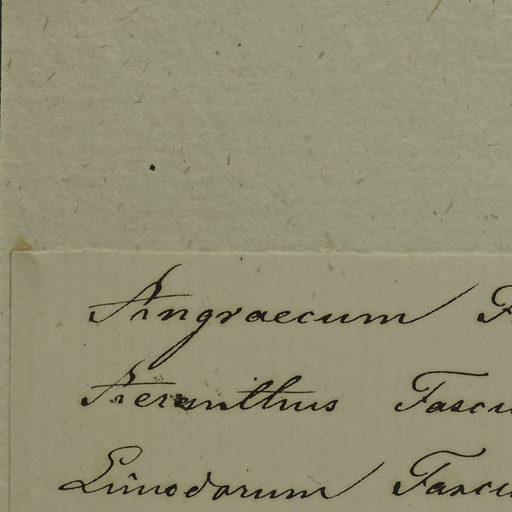 Angraecum F
Aeranthus Fascu
Limodorum Fascu